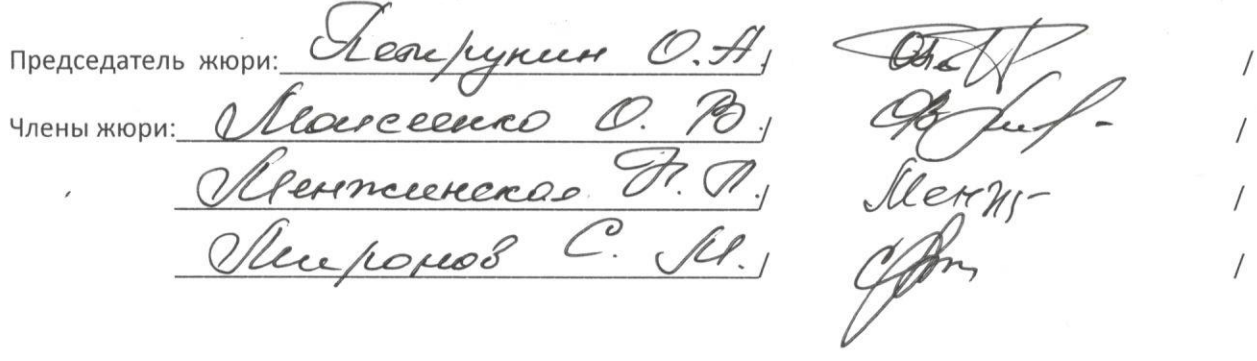 Председатель жюри: Петрунин О.А. /
Члены жюри: Моисеенко О. В. /
Менжинская Н. П. / Менж /
Миронов С. М. /